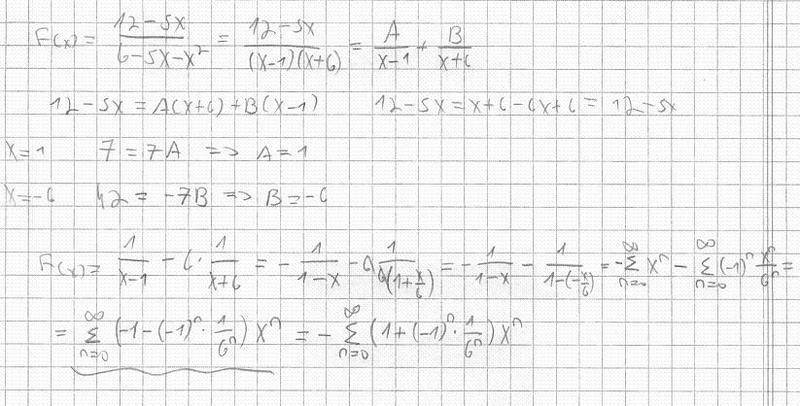 F(x) = \frac{12-5x}{6-5x-x^2} = \frac{12-5x}{(x-1)(x+6)} = \frac{A}{x-1} + \frac{B}{x+6}
12-5x = A(x+6)+B(x-1) 12-5x = x+6-6x+6 = 12-5x
x=1 7=7A => A=1
x=-6 42 = -7B => B=-6
F(x) = \frac{1}{x-1} - 6 \cdot \frac{1}{x+6} = -\frac{1}{1-x} - 6\frac{1}{6(1+\frac{x}{6})} = -\frac{1}{1-x} - \frac{1}{1-(-\frac{x}{6})} = -\sum_{n=0}^{\infty} x^n - \sum_{n=0}^{\infty} (-1)^n \frac{x^n}{6^n} =
= \sum_{n=0}^{\infty} (-1-(-1)^n \cdot \frac{1}{6^n}) x^n = -\sum_{n=0}^{\infty} (1+(-1)^n \cdot \frac{1}{6^n}) x^n